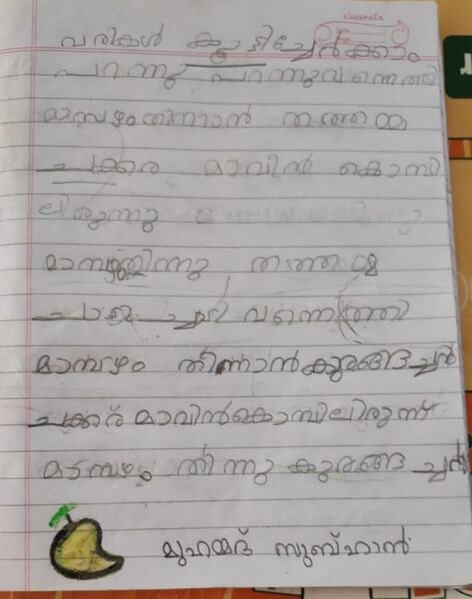 classmate
വരികൾ കൂട്ടിച്ചേർക്കാം
പറന്നു പറന്നുവന്നെത്തി
മാമ്പഴംതിന്നാൻ തത്തമ്മ
ചക്കര മാവിൻ കൊമ്പി
ലിരുന്നു
മാമ്പഴംതിന്നു തത്തമ്മ
ചാടിച്ചാടി വന്നെത്തി
മാമ്പഴം തിന്നാൻകുരങ്ങച്ചൻ
ചക്കര മാവിൻകൊമ്പിലിരുന്ന്
മാമ്പഴം തിന്നു കുരങ്ങച്ചൻ
മുഹമ്മദ് സുബ്ഹാൻ